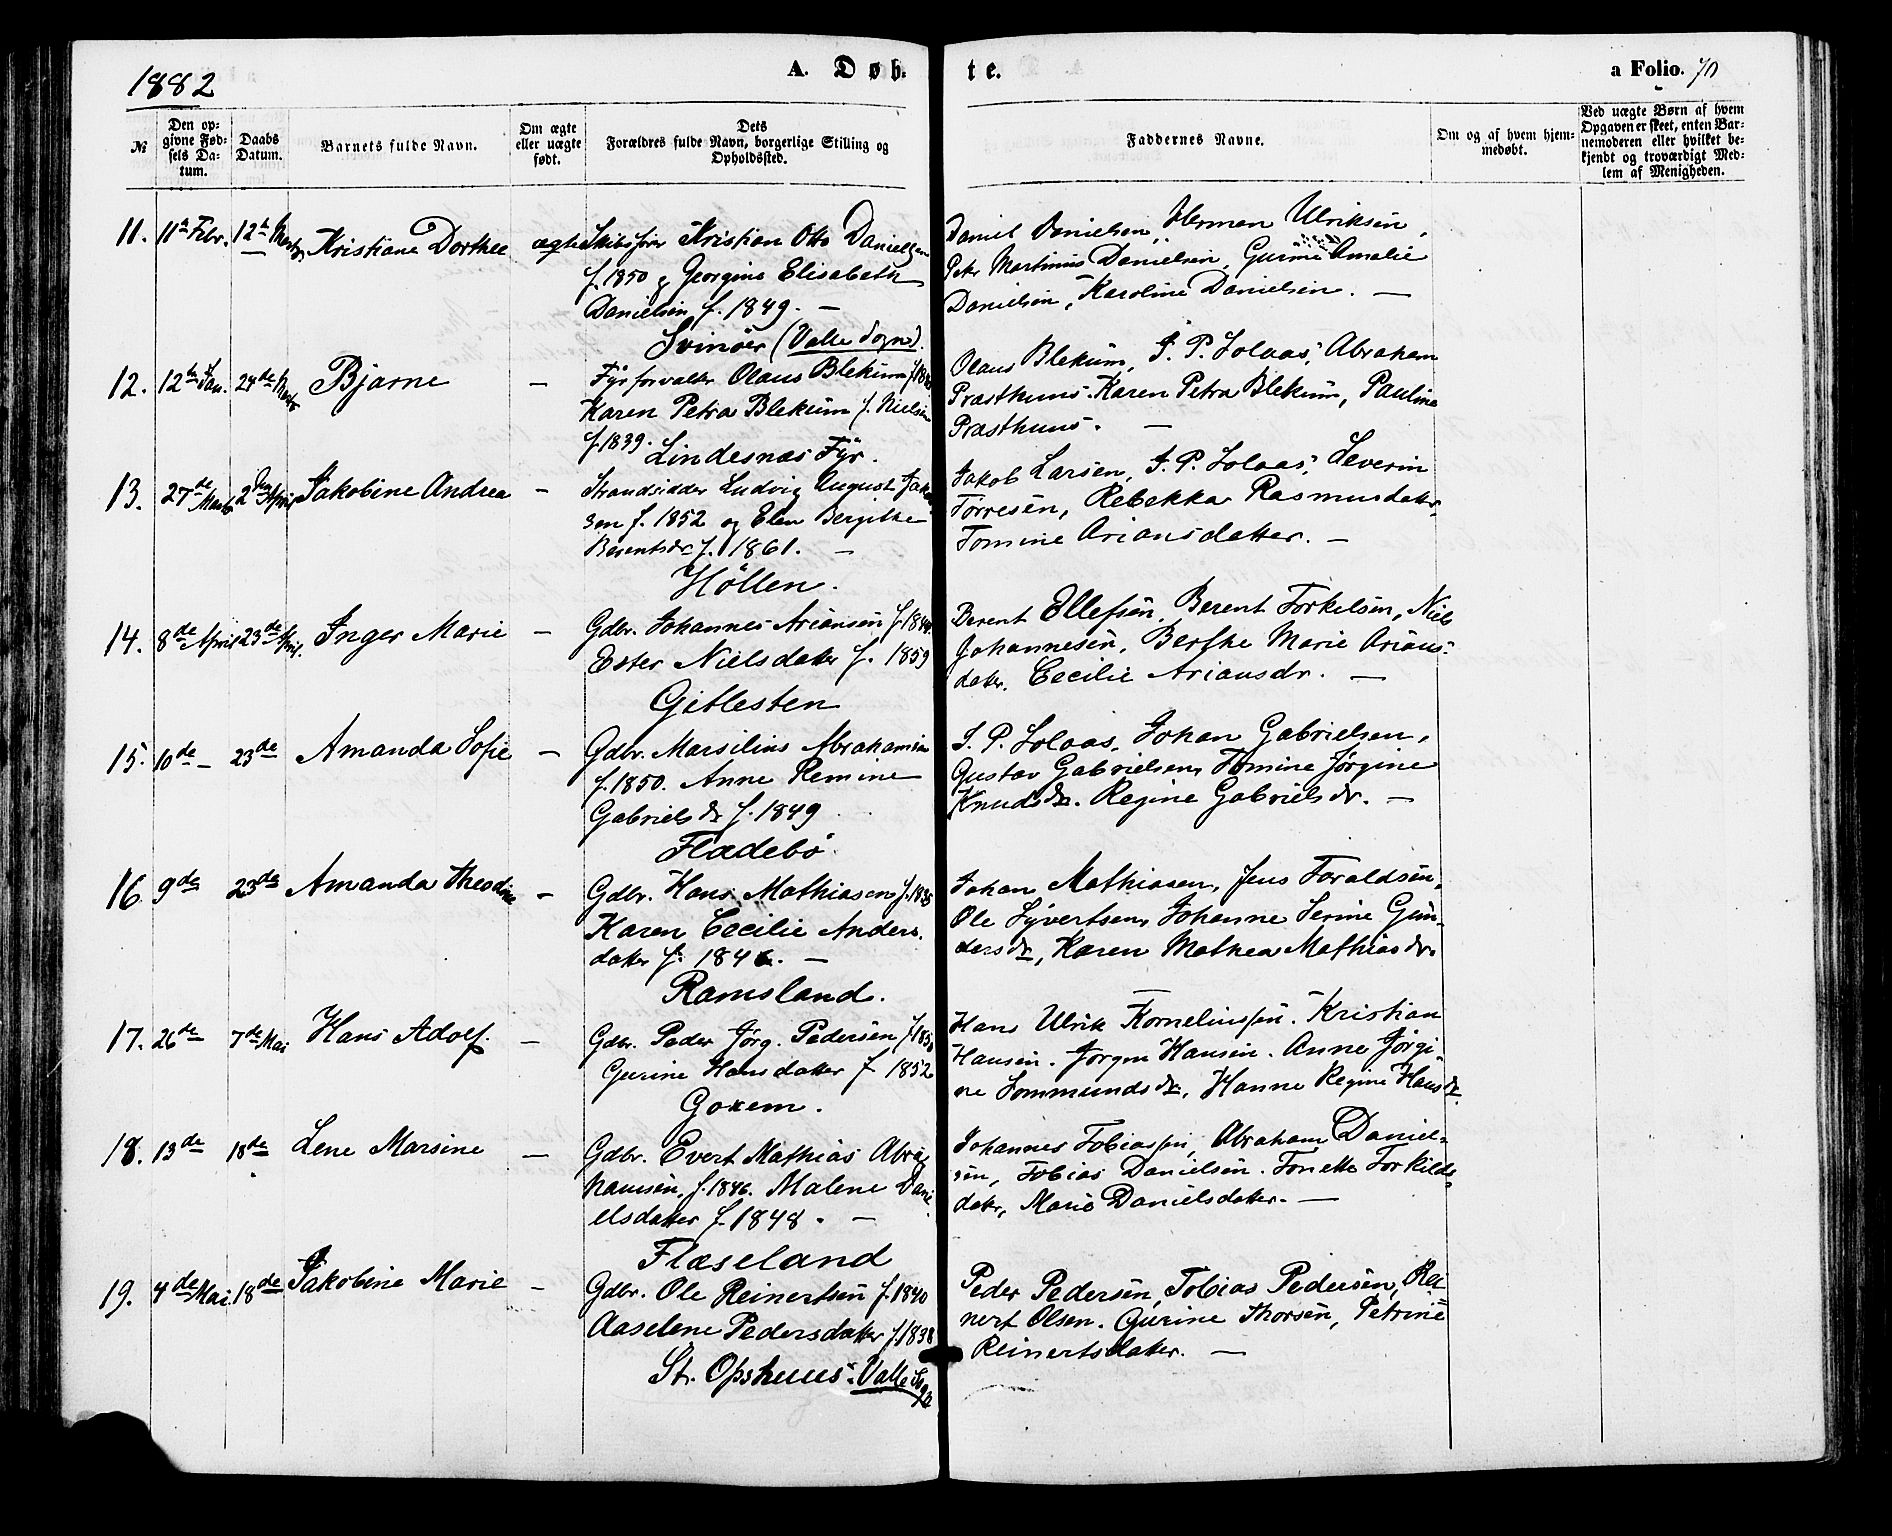 1882
A. Døb-
te.
a Folio. 70
№
Den op-
givne Fød-
sels Da-
tum.
Daabs
Datum.
Barnets fulde Navn.
Om ægte
eller uægte
født.
Dets
Forældres fulde Navn, borgerlige Stilling og
Opholdssted.
Faddernes Navne.
Om og af hvem hjem-
medøbt.
Ved uægte Børn af hvem
Opgaven er skeet, enten Bar-
nemoderen eller hvilket be-
kjendt og troværdigt Med-
lem af Menigheden.
11. 11te Febr. 12te Marts Kristiane Dorthee ægte Skibsfører Kristian Otto Danielsen
f. 1850 og Georgine Elisabeth
Danielsen f. 1849. —
Svinöer (Valle Sogn).
Daniel Danielsen, Herman Ulriksen,
Peter Martinius Danielsen, Gurine Amalie
Danielsen, Karoline Danielsen. —
12. 12te Jan. 24de Marts Bjarne — Fyrforvalter Olaus Blekum
Karen Petra Blekum f. Nielsen
f. 1839.
Lindesnæs Fyr.
Olaus Blekum, J. P. Lolaas, Abraham
Præsthuus. Karen Petra Blekum, Pauline
Præsthuus. —
13. 27de Marts 2den April Jakobine Andrea — Strandsidder Ludvig August Jakob-
sen f. 1852 og Elen Bergithe
Berentsdr f. 1861. —
Höllen.
Jakob Larsen, J. P. Lolaas, Severin
Torresen, Rebekka Rasmusdatter,
Tomine Ariansdatter. —
14. 8de April 23de April. Inger Marie — Gdbr. Johannes Ariansen f. 1844.
Ester Nielsdatter f. 1859
Gitlesten
Berent Ellefsen, Berent Torkelsen, Niels
Johannesen, Berthe Marie Arians-
datter. Cecilie Ariansdr. —
15. 10de — 23de Amanda Sofie — Gdbr. Marsilius Abrahamsen
f. 1850. Anne Remine
Gabrielsdr f. 1849
Fladebö.
J. P. Lolaas, Johan Gabrielsen,
Gustav Gabrielsen, Tomine Jörgine
Knudsdr. Regine Gabrielsdr. —
16. 9de 23de Amanda Theodine — Gdbr. Hans Mathiasen f. 1838
Karen Cecilie Anders-
datter f. 1846. —
Ramsland.
Johan Mathiasen, Jens Taraldsen,
Ole Syvertsen, Johanne Serine Gun-
dersdr, Karen Mathea Mathiasdr.
17. 26de 7de Mai Hans Adolf. — Gdbr. Peder Jörg. Pedersen f. 1850
Gurine Hansdatter f 1852
Goxem.
Hans Ulrik Korneliussen. Kristian
Hansen. Jörgen Hansen. Anne Jörgi-
ne Sommundsdr, Hanne Regine Hansdr.
18. 13de 18de Lene Marsine — Gdbr. Evert Mathias Abra-
hamsen, f. 1846. Malene Dani-
elsdatter f. 1848. —
Flaseland
Johannes Tobiassen, Abraham Daniel-
sen, Tobias Danielsen. Tonette Torkilds-
datter, Marie Danielsdatter. —
19. 4de Mai. 18de Jakobine Marie — Gdbr. Ole Reinertsen f. 1840
Aaselene Pedersdatter f. 1838
St. Opshuus. Valle Sogn
Peder Pedersen, Tobias Pedersen, Rei-
nert Olsen. Gurine Thorsen, Petrine
Reinertsdatter. —